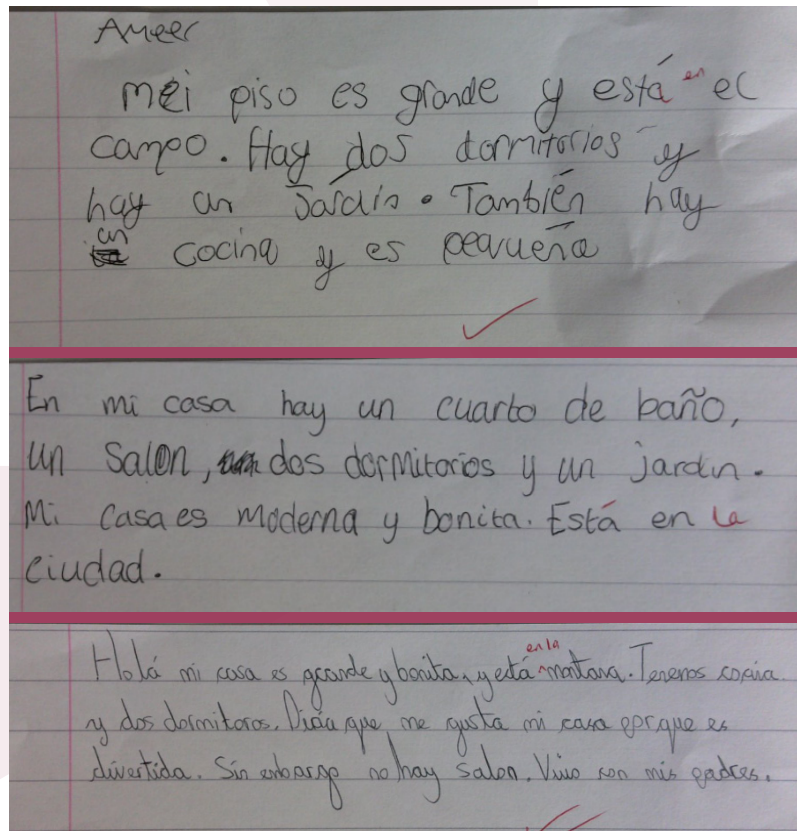 Ameer
mei piso es grande y está en el
campo. Hay dos dormitorios y
hay un Jardín. También hay
un cocina y es pequeña
En mi casa hay un cuarto de baño,
un salon, dos dormitorios y un jardin.
Mi casa es moderna y bonita. Está en la
ciudad.
Holá mi casa es grande y bonita, y está en la montana. Tenemos cocina
y dos dormitoros. Diría que me gusta mi casa porque es
divertida. Sin embargo no hay salon. Vivo con mis padres.